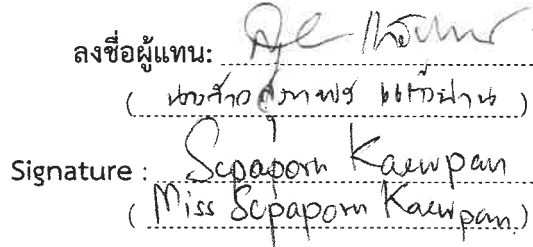 ลงชื่อผู้แทน:
( นางสาว แก้วปาน )
Signature : Sopaporn Kaewpan
( Miss Sopaporn Kaewpan )